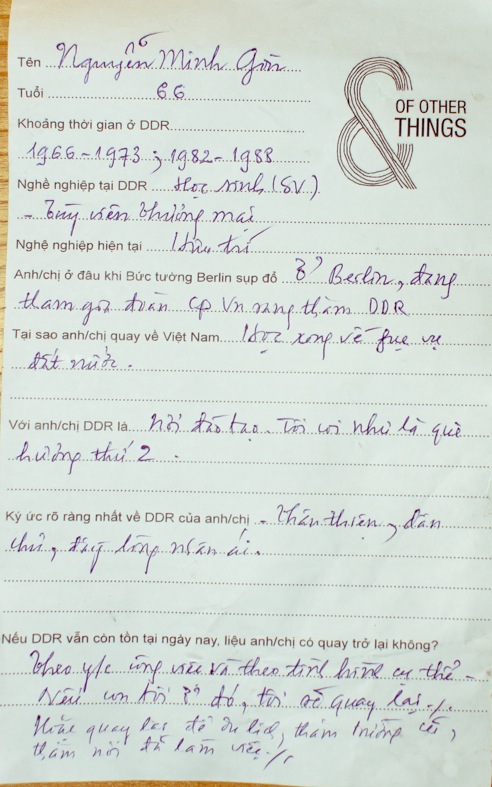 Tên Nguyễn Minh
Tuổi 66
&
OF OTHER
THINGS
Khoảng thời gian ở DDR
1966 - 1973 ; 1982 - 1988
Nghề nghiệp tại DDR Học sinh (SV)
- Tùy viên thương mại
Nghệ nghiệp hiện tại Hưu trí
Anh/chị ở đâu khi Bức tường Berlin sụp đổ Ở Berlin, đang
tham gia đoàn CP VN sang thăm DDR
Tại sao anh/chị quay về Việt Nam Học xong về phục vụ
đất nước.
Với anh/chị DDR là nơi đào tạo. Tôi coi như là quê
hương thứ 2.
Ký ức rõ ràng nhất về DDR của anh/chị - Thân thiện, dân
chủ, đầy lòng nhân ái.
Nếu DDR vẫn còn tồn tại ngày nay, liệu anh/chị có quay trở lại không?
Theo y/c công việc và theo tình hình cụ thể -
Nếu con tôi ở đó, tôi sẽ quay lại./.
Hoặc quay lại để du lịch, thăm trường cũ,
thăm nơi đã làm việc./.